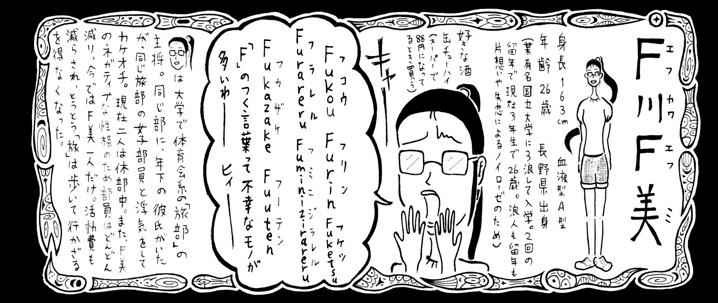 エフカワエフミ
F川F美
身長163cm 血液型A型
年齢26歳 長野県出身
(某有名国立大学に3浪して入学。2回の
留年で現在3年生で26歳。浪人も留年も
片想いや失恋によるノイローゼのため)
好きな酒
缶チューハイ
(スーパーで
88円になって
るとき買う)
キャー
フコウ フリン フケツ
Fukou Furin Fuketsu
フラレル フミニジラレル
Furareru Fuminizirareru
フカザケ フーテン
Fukazake Futen
「F」のつく言葉って不幸なモノが
多いわー ヒィー
は大学で体育会系の「旅部」の
主将。同じ部に、年下の彼氏がいた
が、同じ旅部の女子部員と浮気をして
カケオチ。現在二人は休部中。また、F美
のネガティブな性格のため部員はどんどん
減り、今ではF美一人だけ。活動費も
減らされ、とうとう“旅”は歩いて行かざる
を得なくなった。